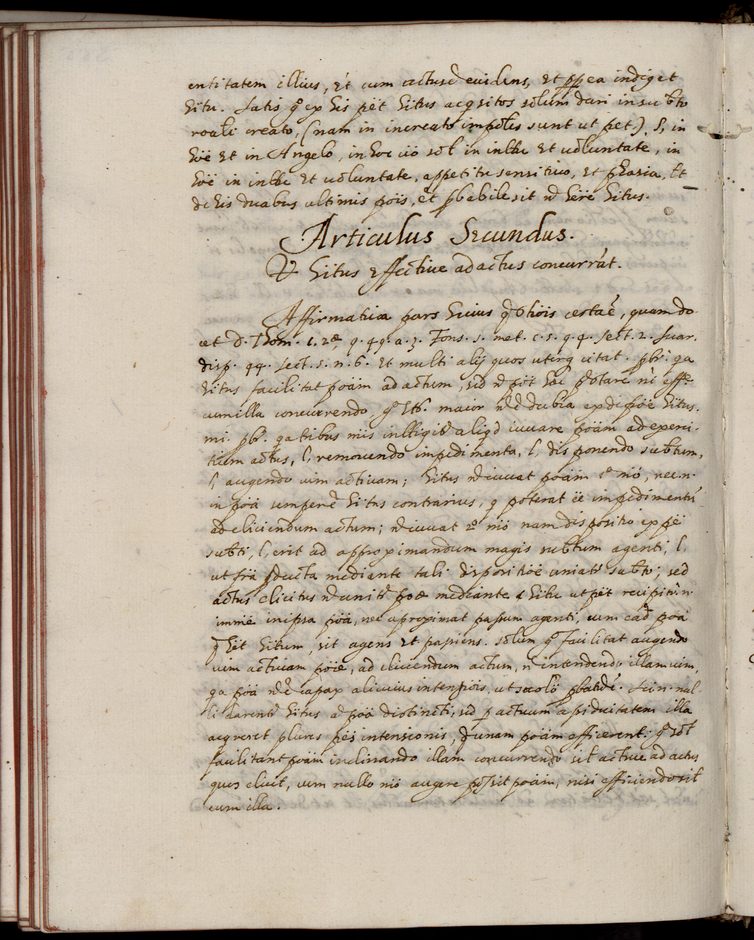 entitatem illius, et cum actus è evidens, et ppea indiget
hitu. Satis gº ex his pet hitus acqsitos solum dari in subto
roali creato, (nam in increato impoles sunt ut pet), s, in
hoë et in Angelo, in hoc vº sol in intle et voluntate, in
hoë in intle et voluntate, appetitu sensitivo, et phasia, et
de his duabus ultimis pois, et pbabile sit n here hitus.
Articulus Secundus.
hitus effective ad actus concurrat.
Affirmativa pars huius qºtiois certa é, quam do
cet D. Thom. 1. 2ę q. 49. a. 3. Fons. 5. met. c. 5. q. 4. sect. 2. Suar.
disp. 44. sect. 5. n. 6. et multi alij quos uterq citat. pbr. qa
hitus facilitat poäm ad actum, sed n pot hoc pstare ni effe
cum illa concurrendo, gº etc. maior n é dubia ex difoë hitus.
mi. pbr. qa tribus mis intlligit aliqd iuvare poäm ad exerci-
tium actus, l, removendo impedimenta, l, disponendo subtum,
l, augendo vim activam; hitus n iuvat poäm 1º mö, nec n.
in poä semper é hitus contrarius, q poterat ée impedimentü
ad eliciendum actum; n iuvat 2º mö nam dispositio ex pe
subti, l, erit ad approximandum magis subtum agenti, l,
ut frä pducta mediante tali dispositioë uniatr subto; sed
actus elicitus n unitr poë mediante hitu ut pet recipitur n.
immë in ipsa poä, nec aproximat passum agenti, cum eadº poä
q hët hitum, sit agens et patiens. solum gº facilitat augendo
vim activam poië, ad eliciendum actum, n intendendo illam vim,
qa poä n é capax alicuius intensiois, ut seclo pbatde.
hitus a poä distincti, sed p actuum assiduitatem illa
acqreret plures pes intensionis unam poäm efficerent; gº sol
facilitant poäm inclinando illam concurrendo sil active ad actus
quos elicit, cum nullo mö augere possit poäm, nisi efficiendo sil
cum illa.